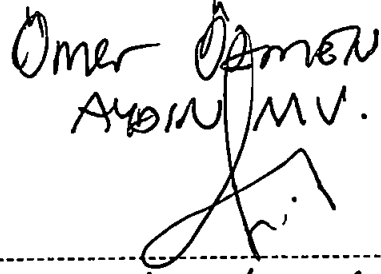 Ömer Özmen
AYDIN MV.